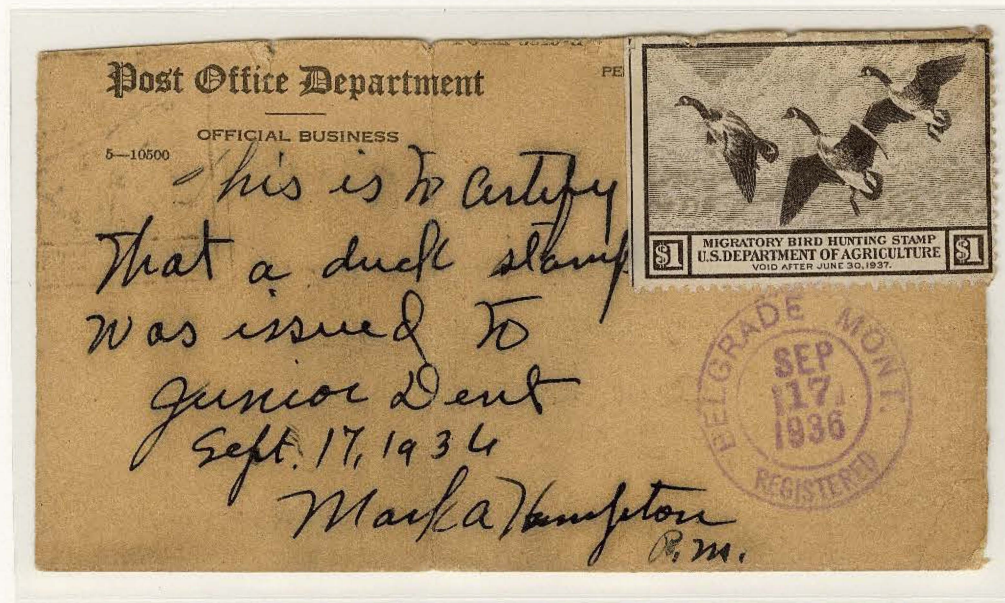 Post Office Department
OFFICIAL BUSINESS
5—10500
PE
This is to certify
that a duck stamp
was issued to
Junior Dent
Sept. 17, 1936
Mark A Hampton
P.M.
$1
MIGRATORY BIRD HUNTING STAMP
U.S. DEPARTMENT OF AGRICULTURE
VOID AFTER JUNE 30, 1937.
$1
BELGRADE MONT.
SEP
17
1936
REGISTERED